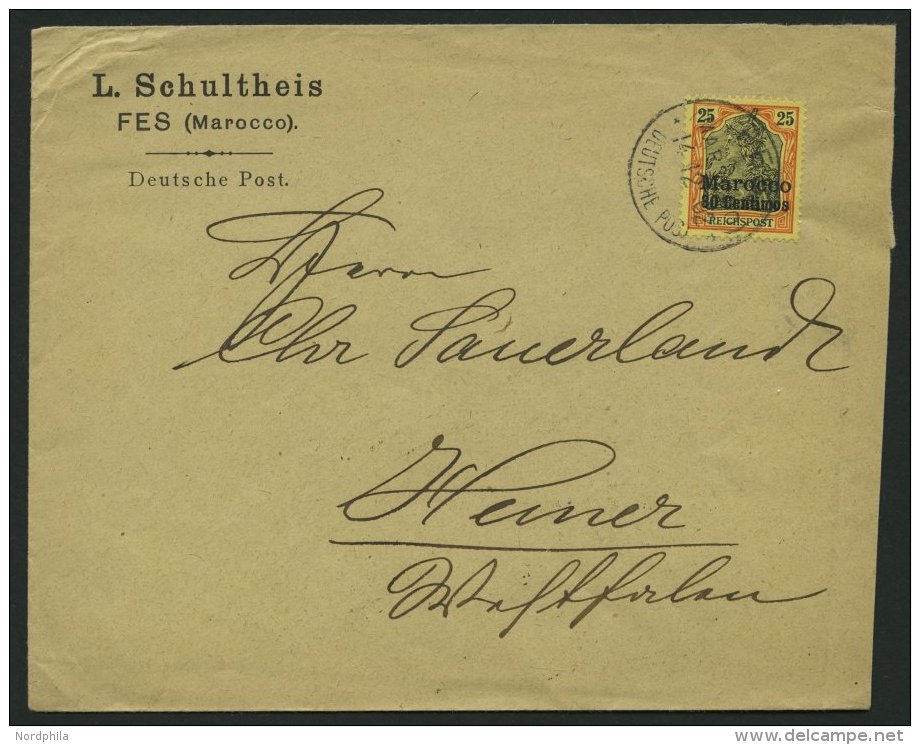 L. Schultheis
FES (Marocco).
Deutsche Post.
25 25
Marocco
30 Centimos
REICHSPOST
DEUTSCHE POST
Herrn
Chr Sauerlandt
Hemer
Westfalen
Nordphila
delcampe.net